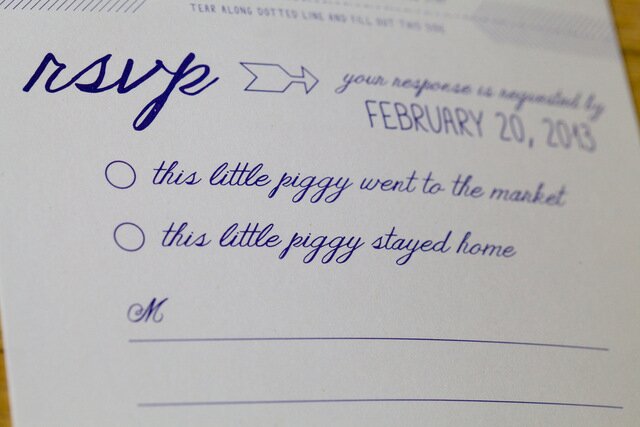 TEAR ALONG DOTTED LINE AND FILL OUT THIS SIDE
rsvp
your response is requested by
FEBRUARY 20, 2013
this little piggy went to the market
this little piggy stayed home
M